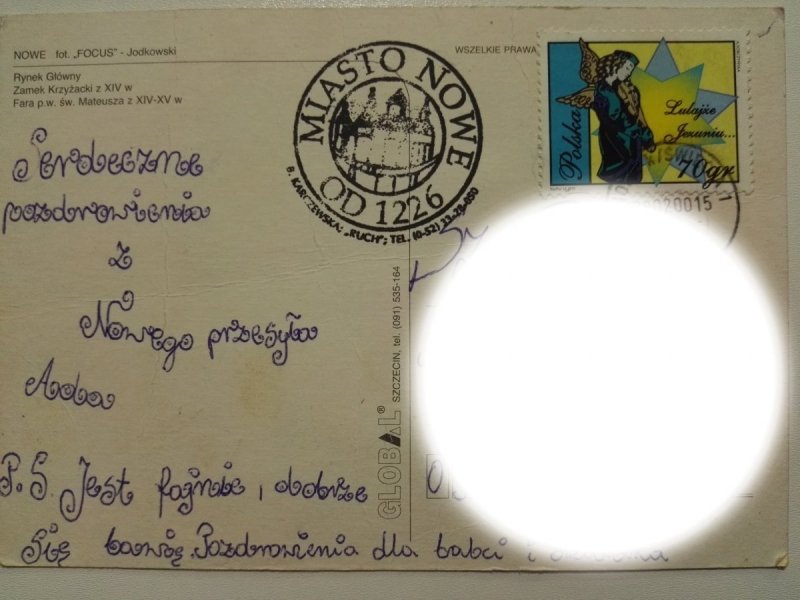 NOWE fot. „FOCUS" - Jodkowski
Rynek Główny
Zamek Krzyżacki z XIV w
Fara p.w. św. Mateusza z XIV-XV w
WSZELKIE PRAWA
MIASTO NOWE
OD 1226
B. KARCZEWSKA; „RUCH"; TEL. (0-52) 33-28-050
Polska
Lulajże
Jezuniu...
70gr
Serdeczne
pozdrowienia
z
Nowego przesyła
Ada
P.S. Jest fajnie i dobrze
się bawię. Pozdrowienia dla babci i
GLOBAL®
SZCZECIN, tel. (091) 535-164